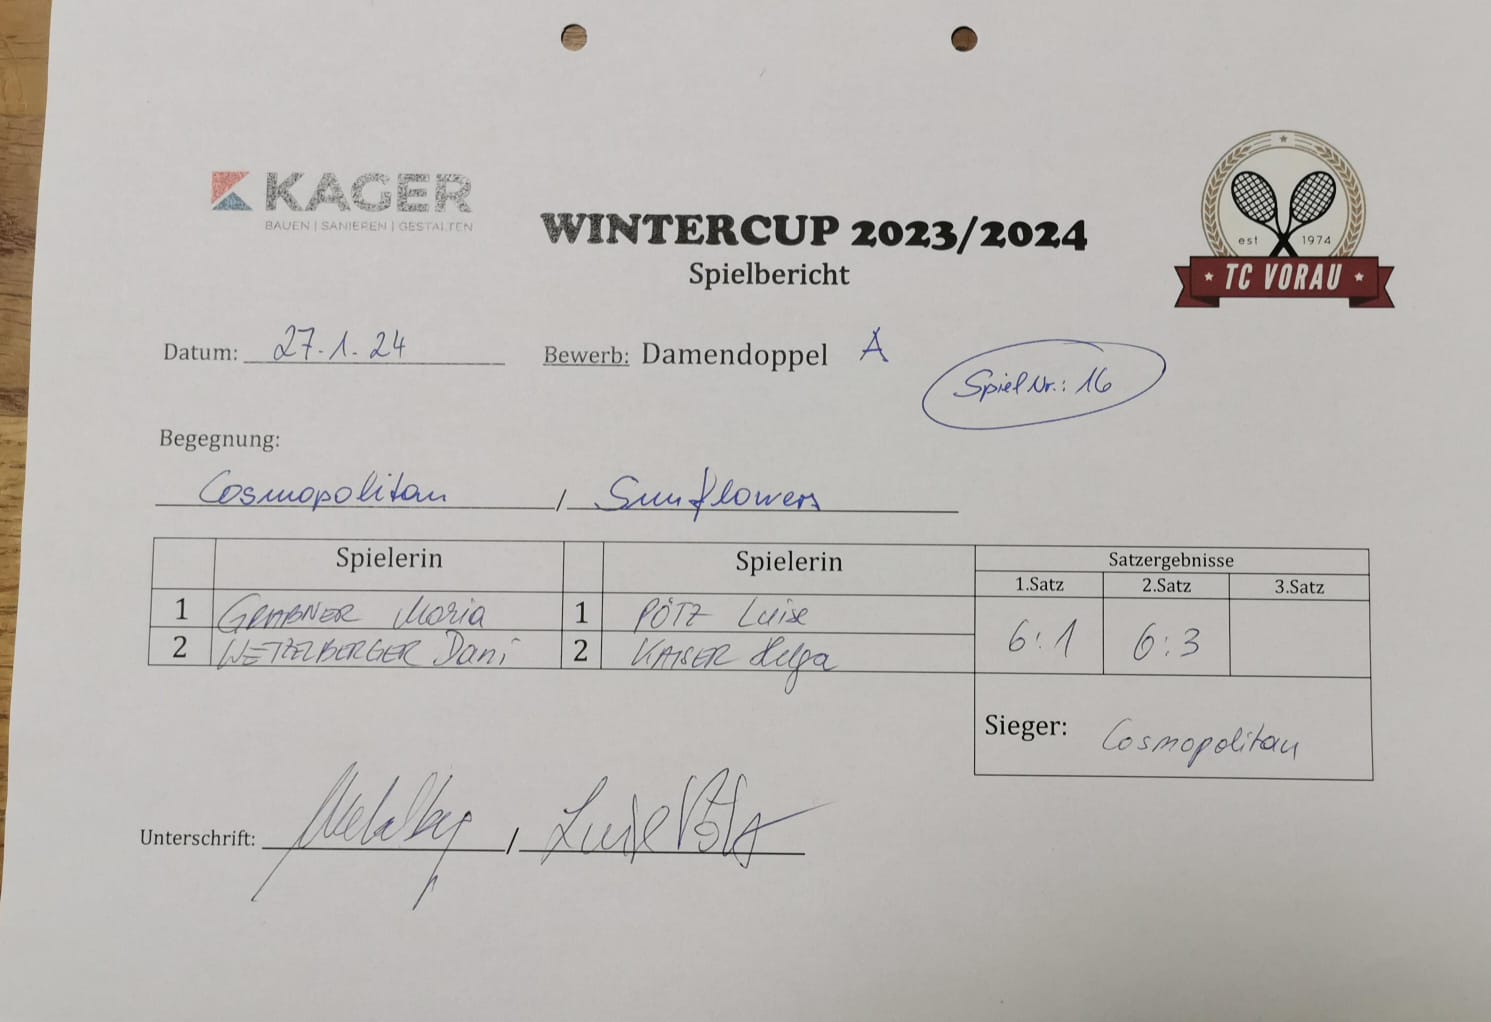 KAGER
BAUEN | SANIEREN | GESTALTEN
WINTERCUP 2023/2024
Spielbericht
est 1974
TC VORAU
Datum: 27.1.24 Bewerb: Damendoppel A
Spiel Nr.: 16
Begegnung:
Cosmopolitan / Sunflowers
Spielerin Spielerin Satzergebnisse
1.Satz 2.Satz 3.Satz
1 GRABNER Maria 1 PÖTZ Luise
6:1 6:3
2 WETZELBERGER Dani 2 KAISER Helga
Sieger: Cosmopolitan
Unterschrift: / Luise Pötz